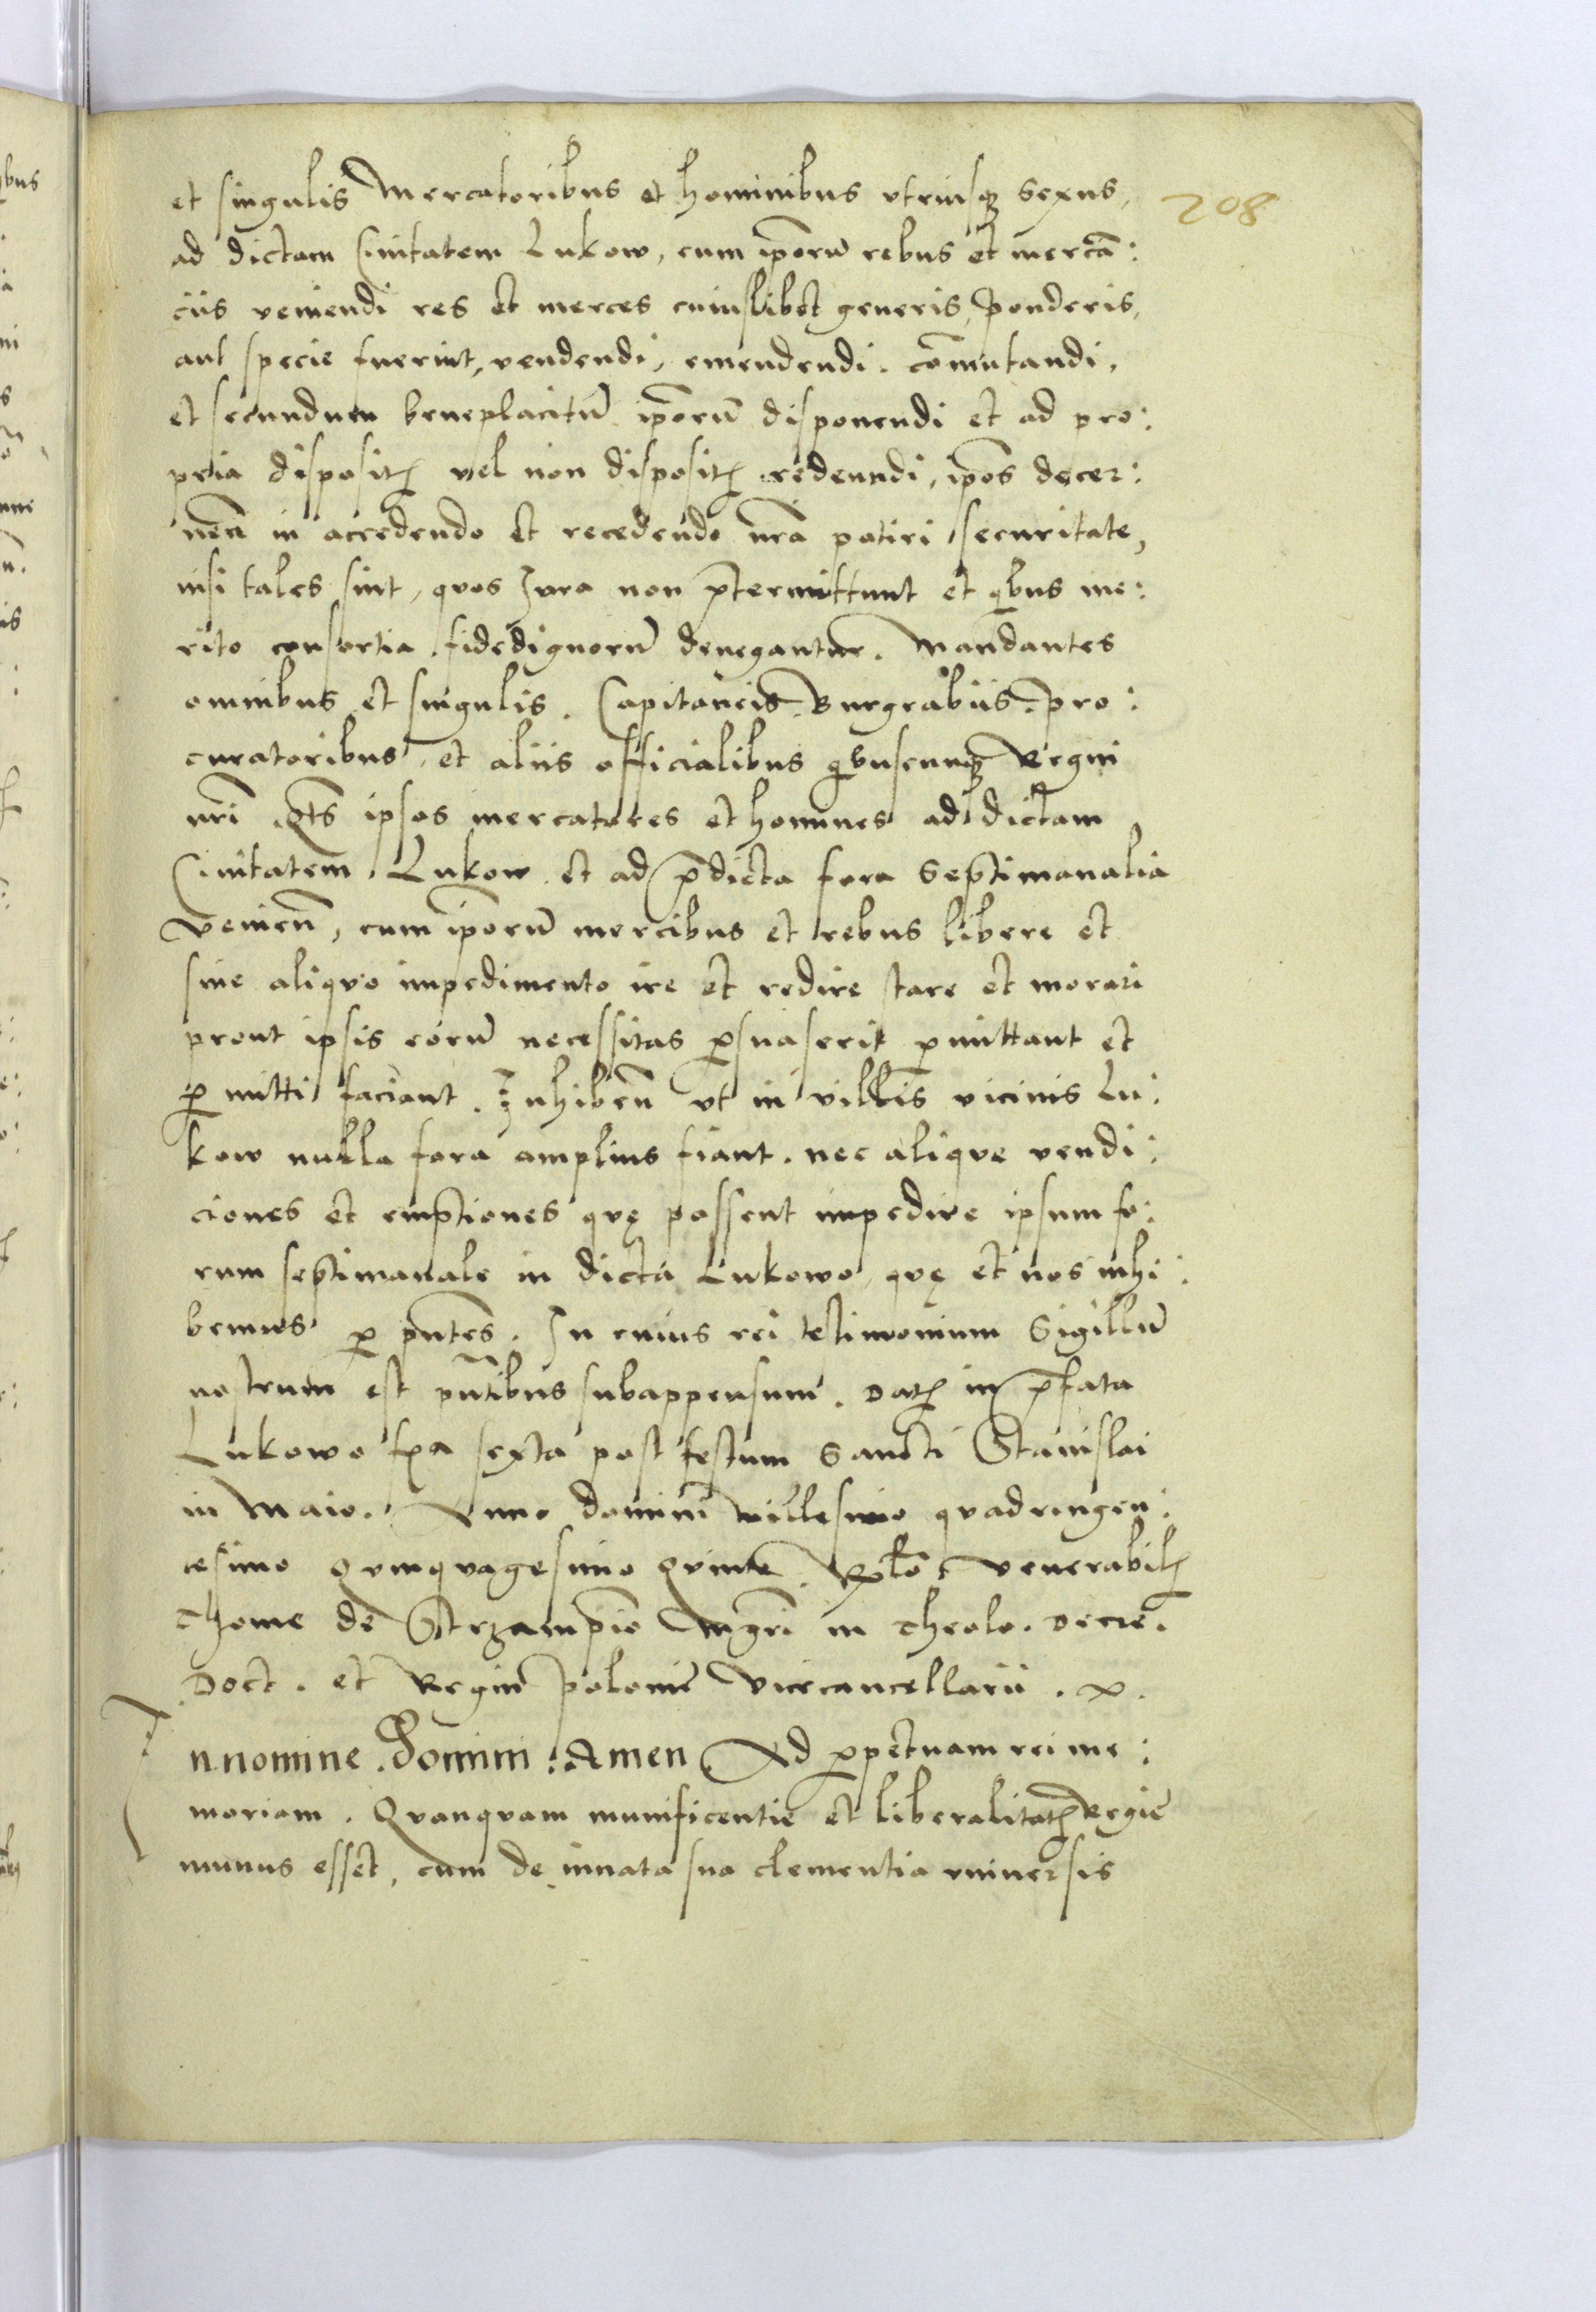 208
et singulis Mercatoribus et hominibus vtriusqꝫ sexus,
ad dictam Ciuitatem Lukow, cum ip̄orū rebus et mercā:
ciis veniendi res et merces cuiuslibet generis, ponderis,
aut specie fuerint, vendendi, emendendi. cōmutandi,
et secundum beneplacitū ip̄orū disponendi et ad pro:
pria disposit̄ vel non disposit̄ redeundi, ip̄os decer:
neñ in accedendo et recedendo nrā potiri securitate,
nisi tales sint, quos Jura non p̄termittunt et qͥbus me:
rito consortia fidedignorū denegantur. Mandantes
omnibus et singulis. Capitaneis. Burgrabiis. pro:
curatoribus, et aliis officialibus qͥbuscunqꝫ Regni
nrī. Qtꝰs ipsos mercatores et homines ad dictam
Ciuitatem Lukow et ad p̄dicta fora Septimanalia
venieñ, cum ip̄orū mercibus et rebus libere et
sine aliquo impedimento ire et redire stare et morari
prout ipsis eorū necessitas ꝑsuaserit ꝑmittant et
ꝑ mitti faciant. Inhibeñ vt in villis vicinis Lu:
kow nulla fora amplius fiant. nec alique vendi:
ciones et emptiones quę possent impedire ipsum fo:
rum septimanale in dicta Lukowo, quę et nos inhi:
bemus ꝑ p̄ntes. In cuius rei testimonium Sigillū
nostrum est p̄ntibus subappensum. Dat̄ in p̄fata
Lukowo fr̄a sexta post festum Sancti Stanislai
in Maio. Anno domini millesimo quadringen:
tesimo Quinquagesimo Quinto. Rl̄o venerabil̄
Thome de Strzampino Mgrī in Theolo. Decre.
Doct. et Regni Polonie Vicecancellarii.
In nomine Domini. Amen Ad ꝑpetuam rei me:
moriam. Quanquam munificentie et liberalitat̄ Regie
munus esset, cum de innata sua clementia vniuersis